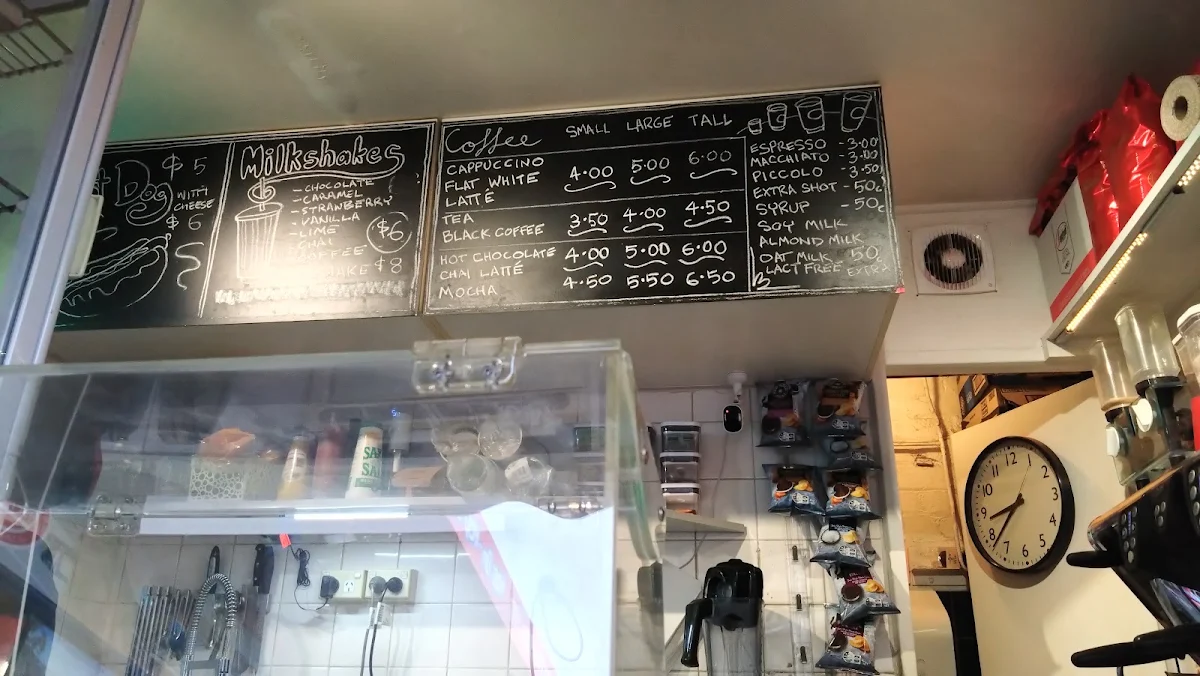 Dog $5
WITH
CHEESE
$6
Milkshakes
- CHOCOLATE
- CARAMEL
- STRAWBERRY
- VANILLA
- LIME
- CHAI
COFFEE
$6
$8
Coffee SMALL LARGE TALL
CAPPUCCINO
FLAT WHITE 4.00 5.00 6.00
LATTÉ
TEA 3.50 4.00 4.50
BLACK COFFEE
HOT CHOCOLATE 4.00 5.00 6.00
CHAI LATTÉ
MOCHA 4.50 5.50 6.50
ESPRESSO - 3.00
MACCHIATO - 3.00
PICCOLO - 3.50
EXTRA SHOT - 50c
SYRUP - 50c
SOY MILK
ALMOND MILK
OAT MILK 50c
LACT FREE EXTRA
12 1 2 3 4 5 6 7 8 9 10 11